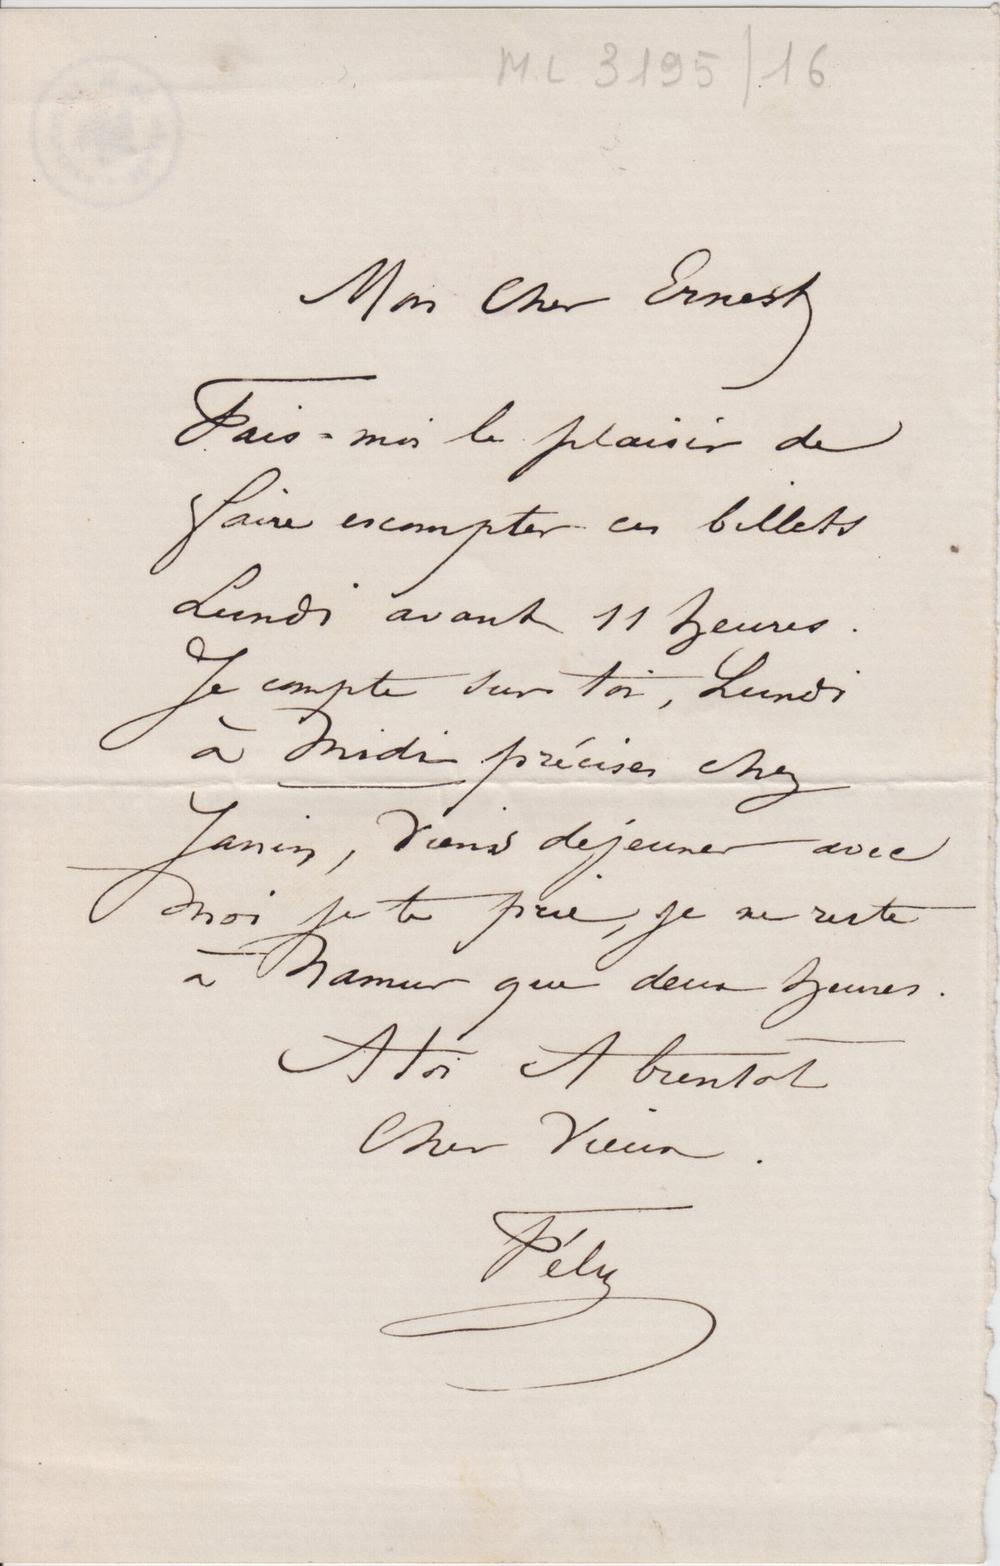 ML 3195/16
Mon Cher Ernest
Fais-moi le plaisir de
faire escompter ces billets
Lundi avant 11 heures.
Je compte sur toi, Lundi
à Midi précises chez
Janin, Viens dejeuner avec
Moi je te prie, je ne reste
à Namur que deux heures.
A toi A bientot
Cher Vieux.
Fély